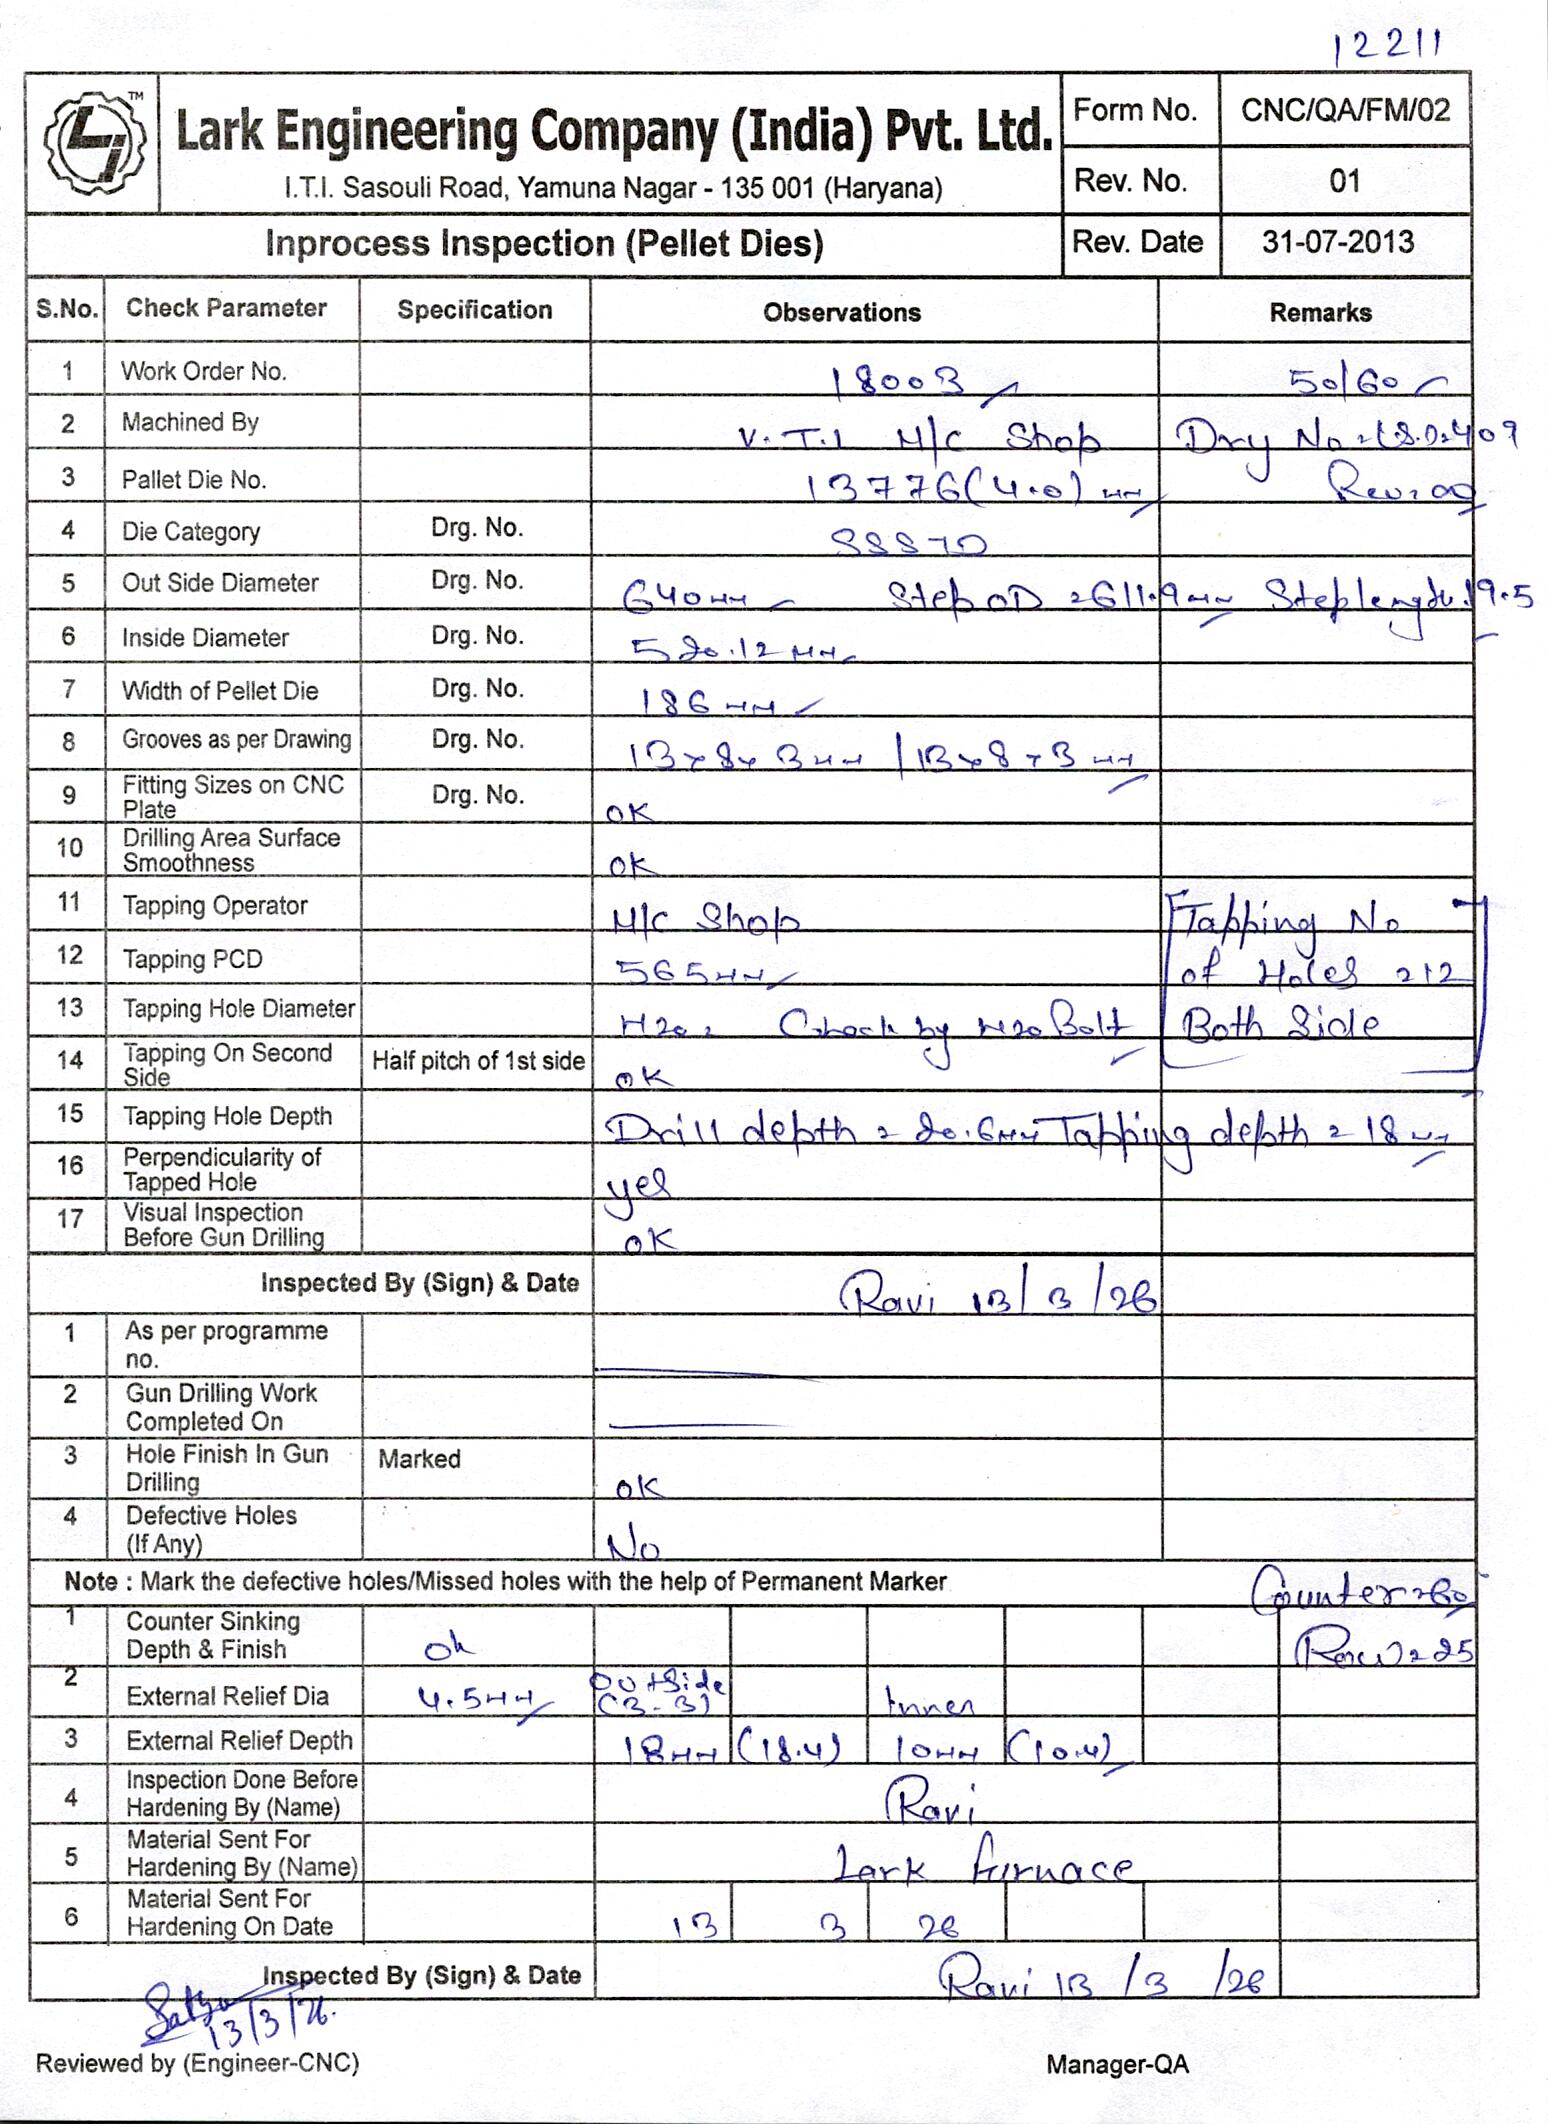 12211
TM
Lark Engineering Company (India) Pvt. Ltd.
I.T.I. Sasouli Road, Yamuna Nagar - 135 001 (Haryana)
Form No. CNC/QA/FM/02
Rev. No. 01
Inprocess Inspection (Pellet Dies) Rev. Date 31-07-2013
S.No. Check Parameter Specification Observations Remarks
1 Work Order No. 18003 50/60
2 Machined By V.T.I M/C Shop Drg No
3 Pallet Die No. 13776(4.0) mm
4 Die Category Drg. No.
5 Out Side Diameter Drg. No. 640mm Step OD = 611.9mm Step length 19.5
6 Inside Diameter Drg. No. 520.12mm
7 Width of Pellet Die Drg. No. 186mm
8 Grooves as per Drawing Drg. No. 13x8x3mm / 13x8x3mm
9 Fitting Sizes on CNC Plate Drg. No. OK
10 Drilling Area Surface Smoothness OK
11 Tapping Operator M/C Shop Tapping No
12 Tapping PCD 565mm of Holes = 12
13 Tapping Hole Diameter M20 = Check by M20 Bolt Both Side
14 Tapping On Second Side Half pitch of 1st side OK
15 Tapping Hole Depth Drill depth = 20.6mm Tapping depth = 18mm
16 Perpendicularity of Tapped Hole yes
17 Visual Inspection Before Gun Drilling OK
Inspected By (Sign) & Date Ravi 13/3/26
1 As per programme no.
2 Gun Drilling Work Completed On
3 Hole Finish In Gun Drilling Marked OK
4 Defective Holes (If Any) No
Note : Mark the defective holes/Missed holes with the help of Permanent Marker Counter = 60
1 Counter Sinking Depth & Finish Ok Row = 25
2 External Relief Dia 4.5mm Outside (3-3) Inner
3 External Relief Depth 18mm (18.4) 10mm (10.4)
4 Inspection Done Before Hardening By (Name) Ravi
5 Material Sent For Hardening By (Name) Lark furnace
6 Material Sent For Hardening On Date 13 3 26
Inspected By (Sign) & Date Ravi 13/3/26
13/3/26.
Reviewed by (Engineer-CNC) Manager-QA